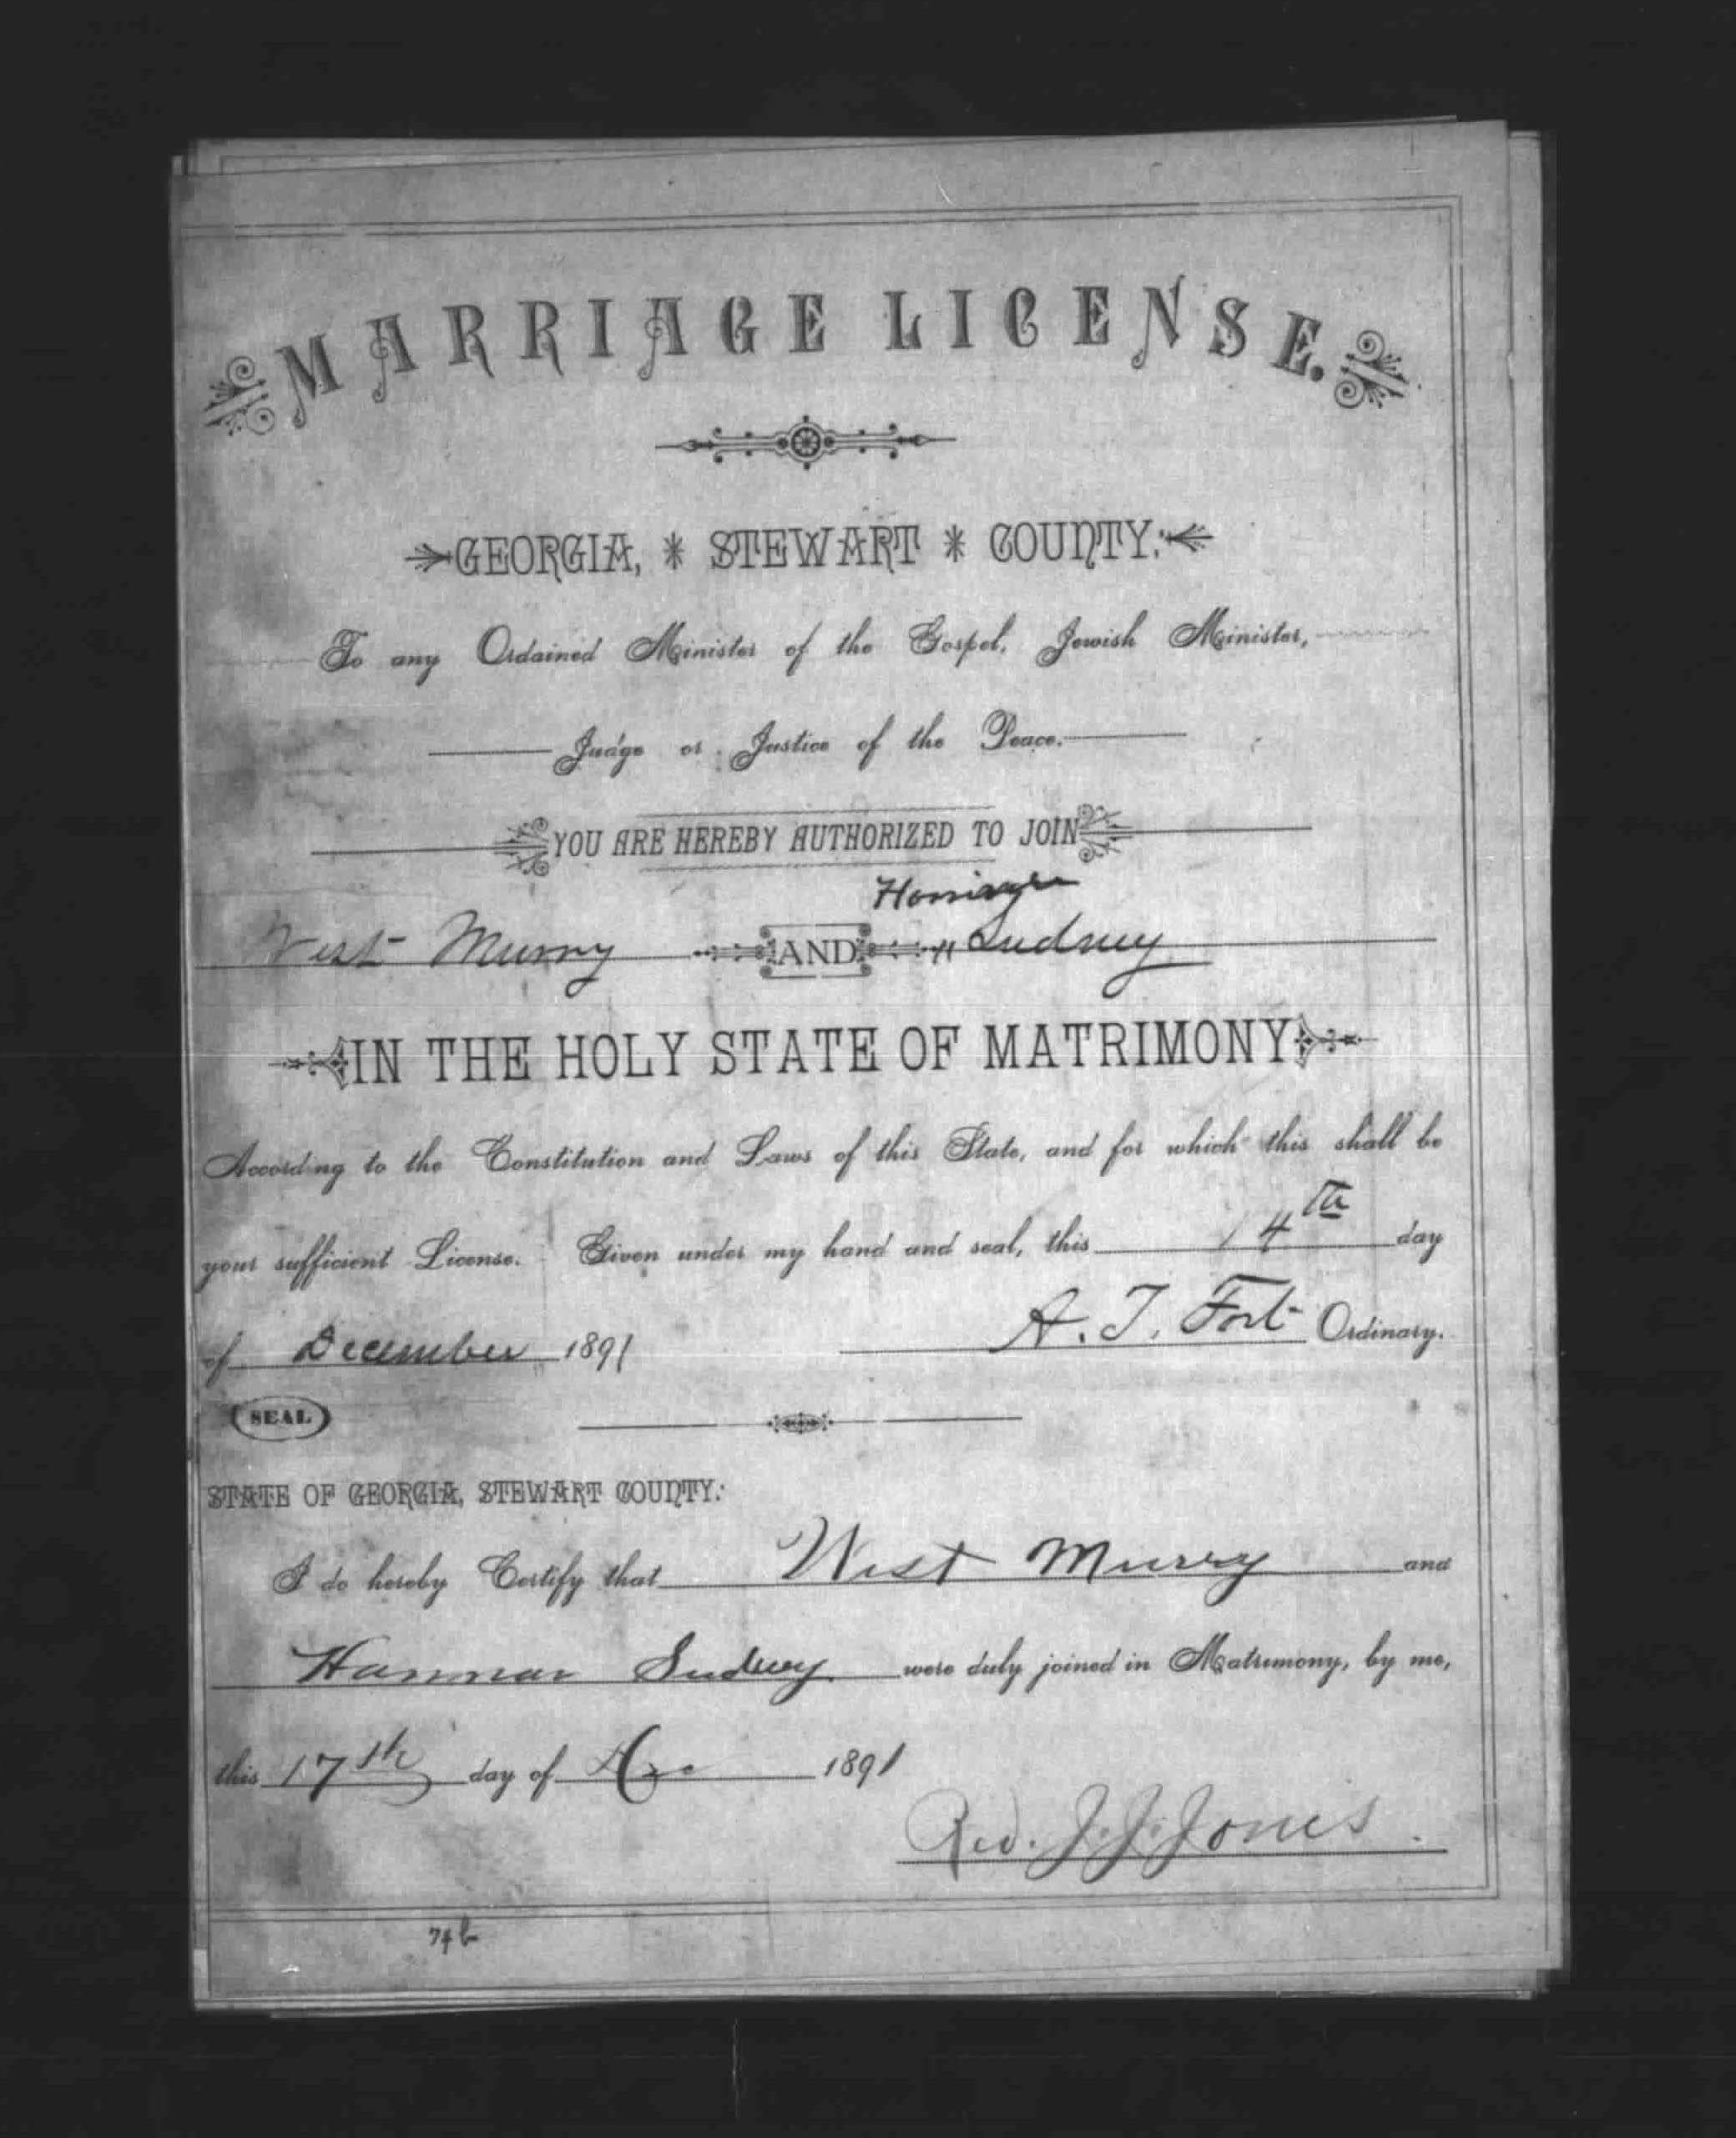 MARRIAGE LICENSE.
GEORGIA, * STEWART * COUNTY:
To any Ordained Minister of the Gospel, Jewish Minister,
Judge or Justice of the Peace.
YOU ARE HEREBY AUTHORIZED TO JOIN
West Murry AND Sudney
IN THE HOLY STATE OF MATRIMONY
According to the Constitution and Laws of this State, and for which this shall be
your sufficient License. Given under my hand and seal, this 14th day
of December 1891 A. T. Fort Ordinary.
SEAL
STATE OF GEORGIA, STEWART COUNTY:
I do hereby Certify that West Murry and
Hannar Sudney were duly joined in Matrimony, by me,
this 17th day of Dec 1891
Rev. J. J. Jones